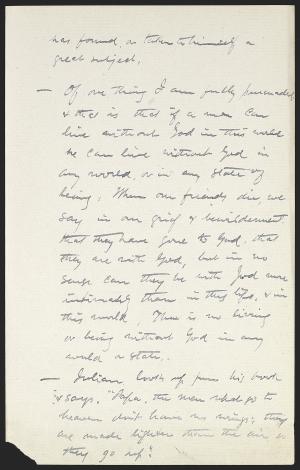 has found, or taken to himself a
great subject.
— Of one thing I am fully persuaded
& that is that if a man can
live without God in this world
he can live without God in
any world, or in any state of
being. When our friends die, we
say in our grief & bewilderment
that they have gone to God, that
they are with God, but in no
sense can they be with God more
intimately than in this life, & in
this world. There is no living
or being without God in any
world or state.
— Julian looks up from his book
& says, "Papa, the men who go to
heaven don't have no wings; they
are made lighter than the air &
they go up".